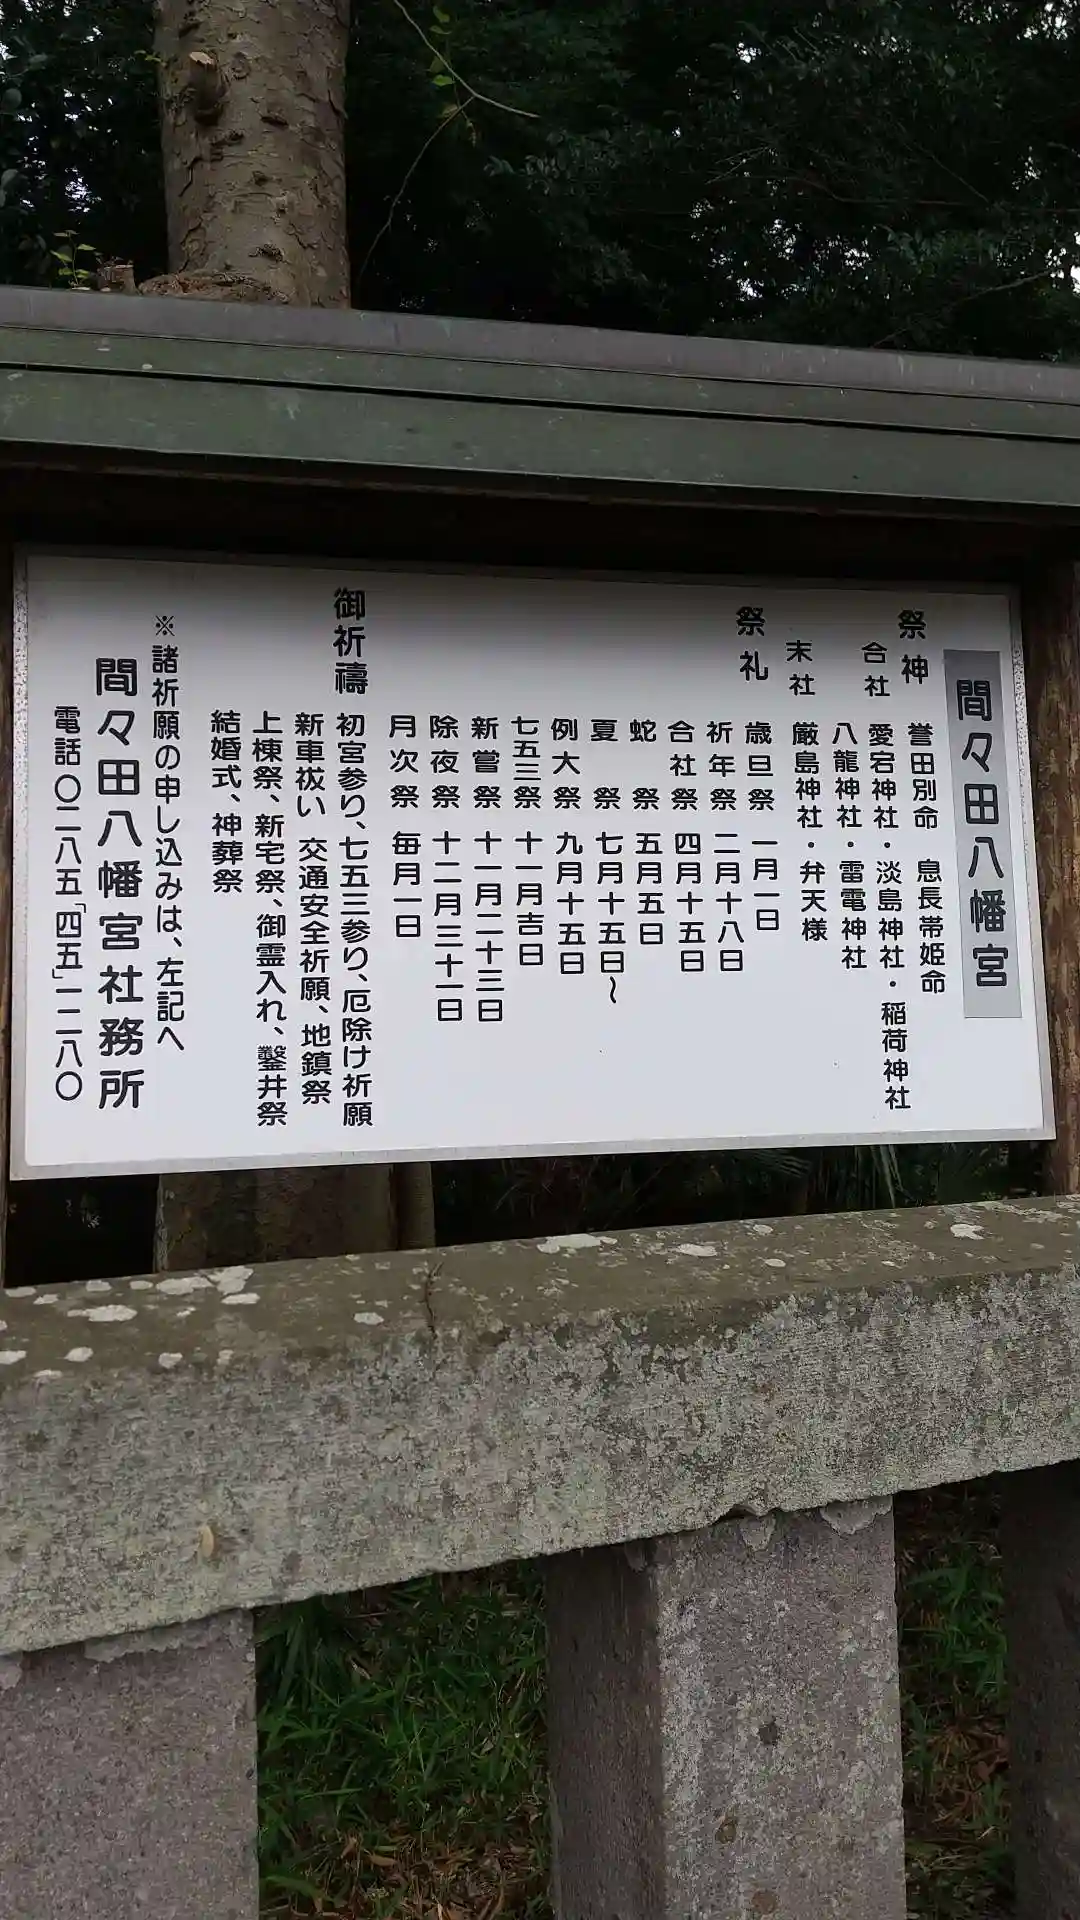 間々田八幡宮
祭神 誉田別命 息長帯姫命
合社 愛宕神社・淡島神社・稲荷神社
八龍神社・雷電神社
末社 厳島神社・弁天様
祭礼 歳旦祭 一月一日
祈年祭 二月十八日
合社祭 四月十五日
蛇祭 五月五日
夏祭 七月十五日~
例大祭 九月十五日
七五三祭 十一月吉日
新嘗祭 十一月二十三日
除夜祭 十二月三十一日
月次祭 毎月一日
御祈禱 初宮参り、七五三参り、厄除け祈願
新車祓い 交通安全祈願、地鎮祭
上棟祭、新宅祭、御霊入れ、鑿井祭
結婚式、神葬祭
※諸祈願の申し込みは、左記へ
間々田八幡宮社務所
電話〇二八五「四五」一二八〇